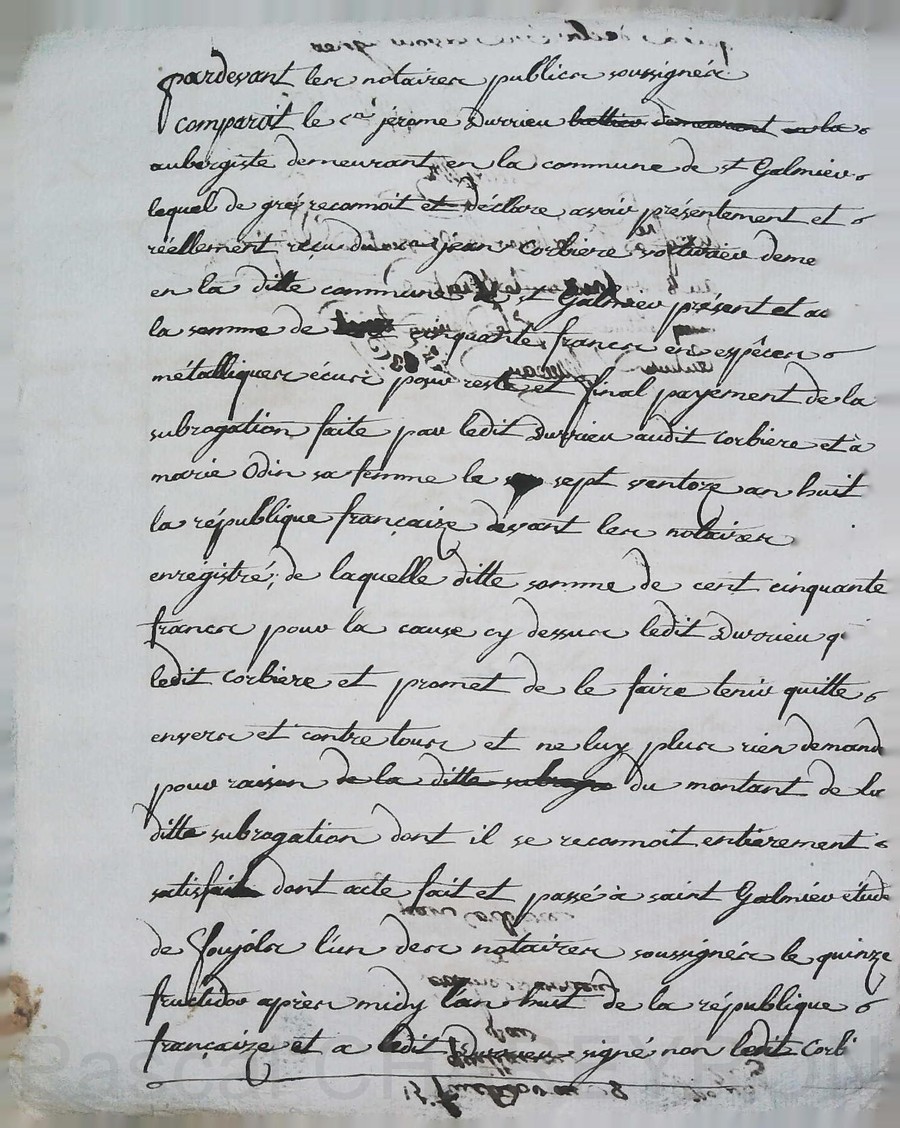 pardevant les notaires publics soussignés
comparoit le c.en jérome Durrieu demeurant en la
aubergiste demeurant en la commune de st Galmier
lequel de gré reconnoit et déclare avoir présentement et
réellement reçu de jean Corbiere voiturier deme
en la ditte commune de st Galmier présent et ac
la somme de cinquante francs en espêces
métalliques écus pour reste et final payement de la
subrogation faite par ledit Durrieu audit Corbiere et à
marie Odin sa femme le sept ventoze an huit
la république françaize devant les notaires
enregistré; de laquelle ditte somme de cent cinquante
francs pour la cause cy dessus ledit Durrieu q
ledit Corbiere et promet de le faire tenir quitte
envers et contre tous et ne luy plus rien demand
pour raison de la ditte subroga du montant de la
ditte subrogation dont il se reconnoit entierement
satisfait dont acte fait et passé à saint Galmier étude
de Joujols l'un des notaires soussignés le quinze
fructidor après midy l'an huit de la république
françaize et a ledit Durrieu signé non ledit Corbi